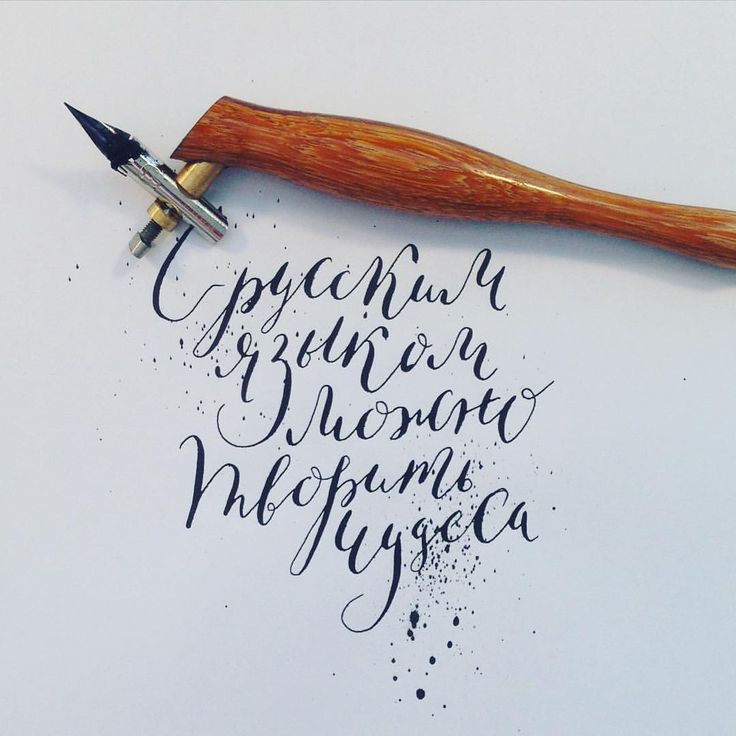 С русским
языком
можно
творить
чудеса